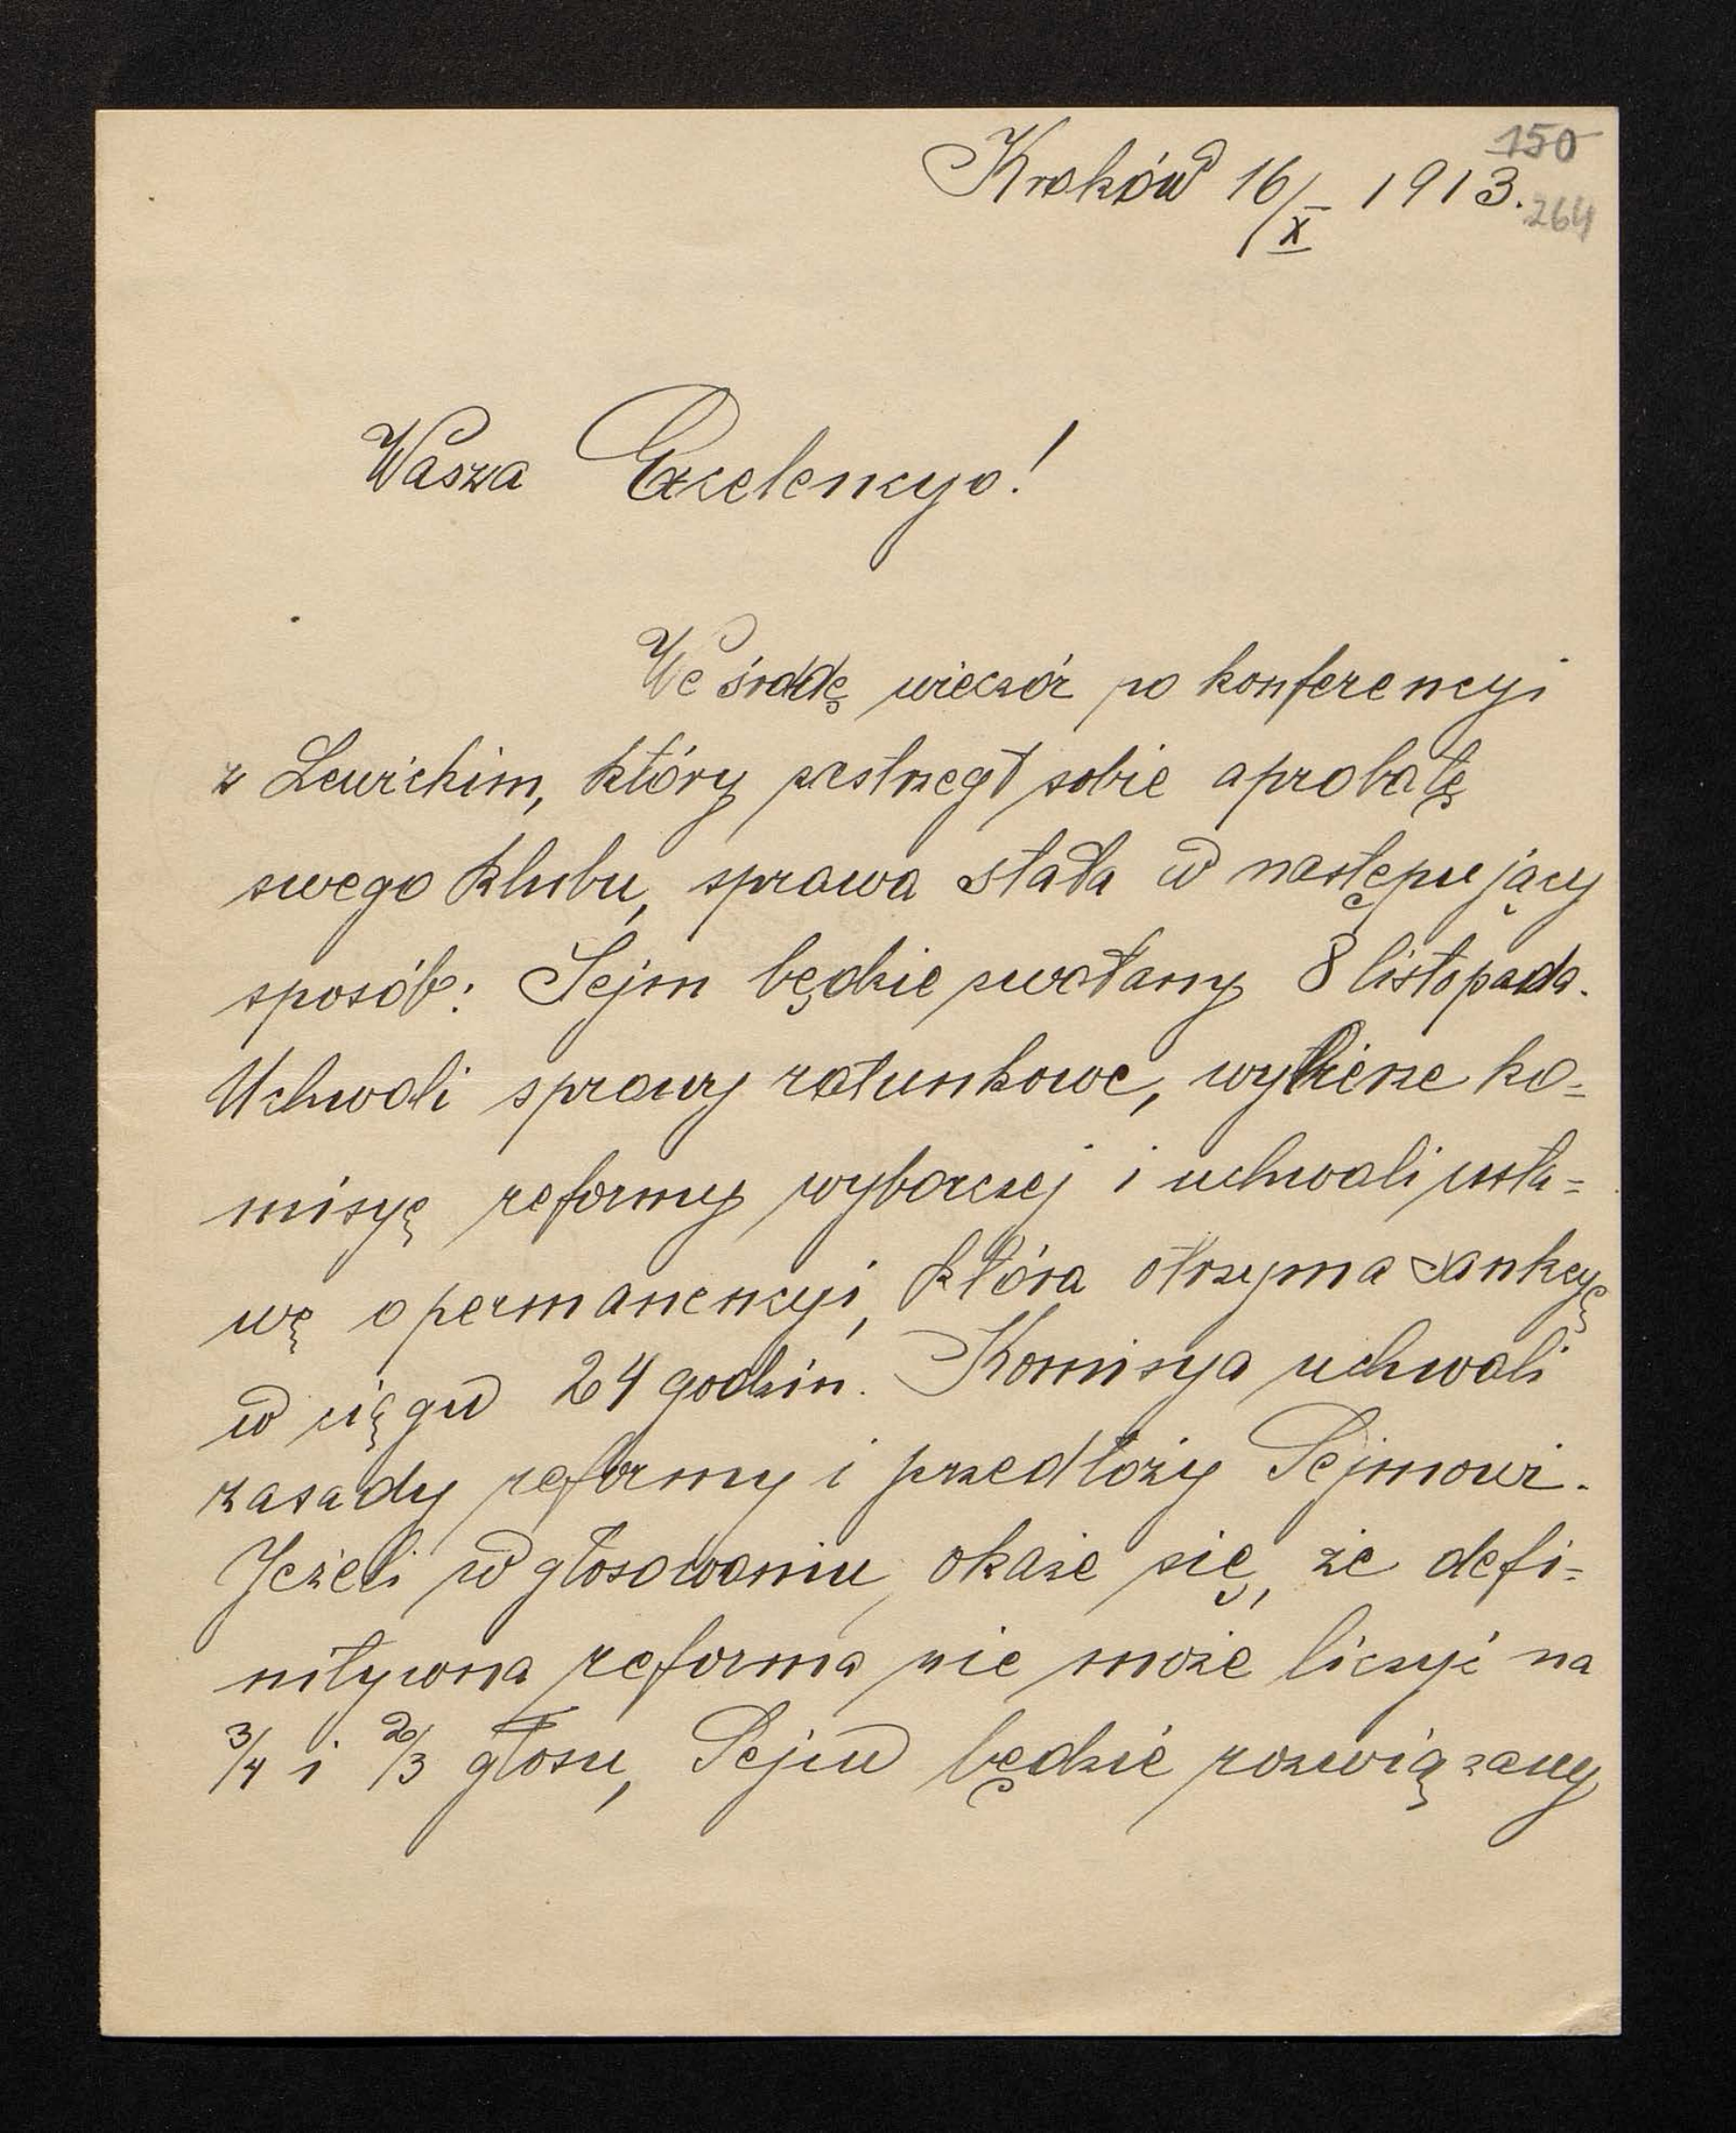 150
Kraków 16/X 1913.
264
Wasza Excelencyo!
We środę wieczór po konferencyi
z Lewickim, który zastrzegł sobie aprobatę
swego klubu, sprawa stała w następujący
sposób: Sejm będzie zwołany 8 listopada.
Uchwali sprawy ratunkowe, wybierze ko=
misyę reformy wyborczej i uchwali usta=
wę o permanencyi, która otrzyma sankcyę
w ciągu 24 godzin. Komisya uchwali
zasady reformy i przedłoży Sejmowi.
Jeżeli w głosowaniu okaże się, że defi=
nitywna reforma nie może liczyć na
3/4 i 2/3 głosu, Sejm będzie rozwiązany